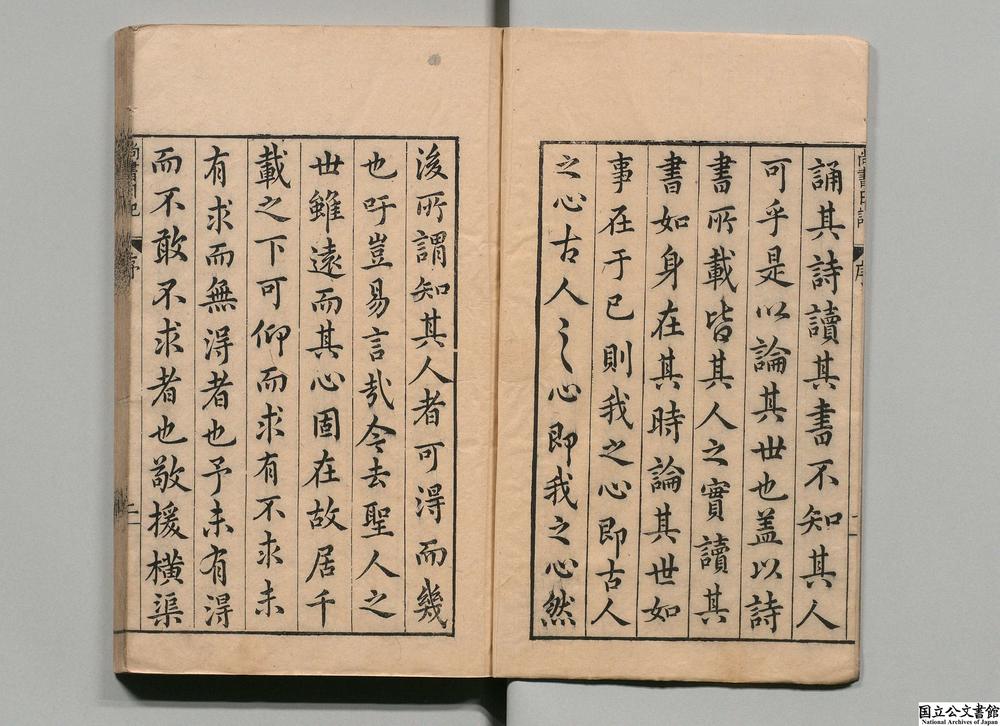 誦其詩讀其書不知其人
可乎是以論其世也盖以詩
書所載皆其人之實讀其
書如身在其時論其世如
事在于已則我之心即古人
之心古人之心即我之心然
後所謂知其人者可淂而幾
也吁豈易言㢤今去聖人之
世雖遠而其心固在故居千
載之下可仰而求有不求未
有求而無淂者也予未有淂
而不敢不求者也敬援橫渠
尚書日記
序
国立公文書館
National Archives of Japan